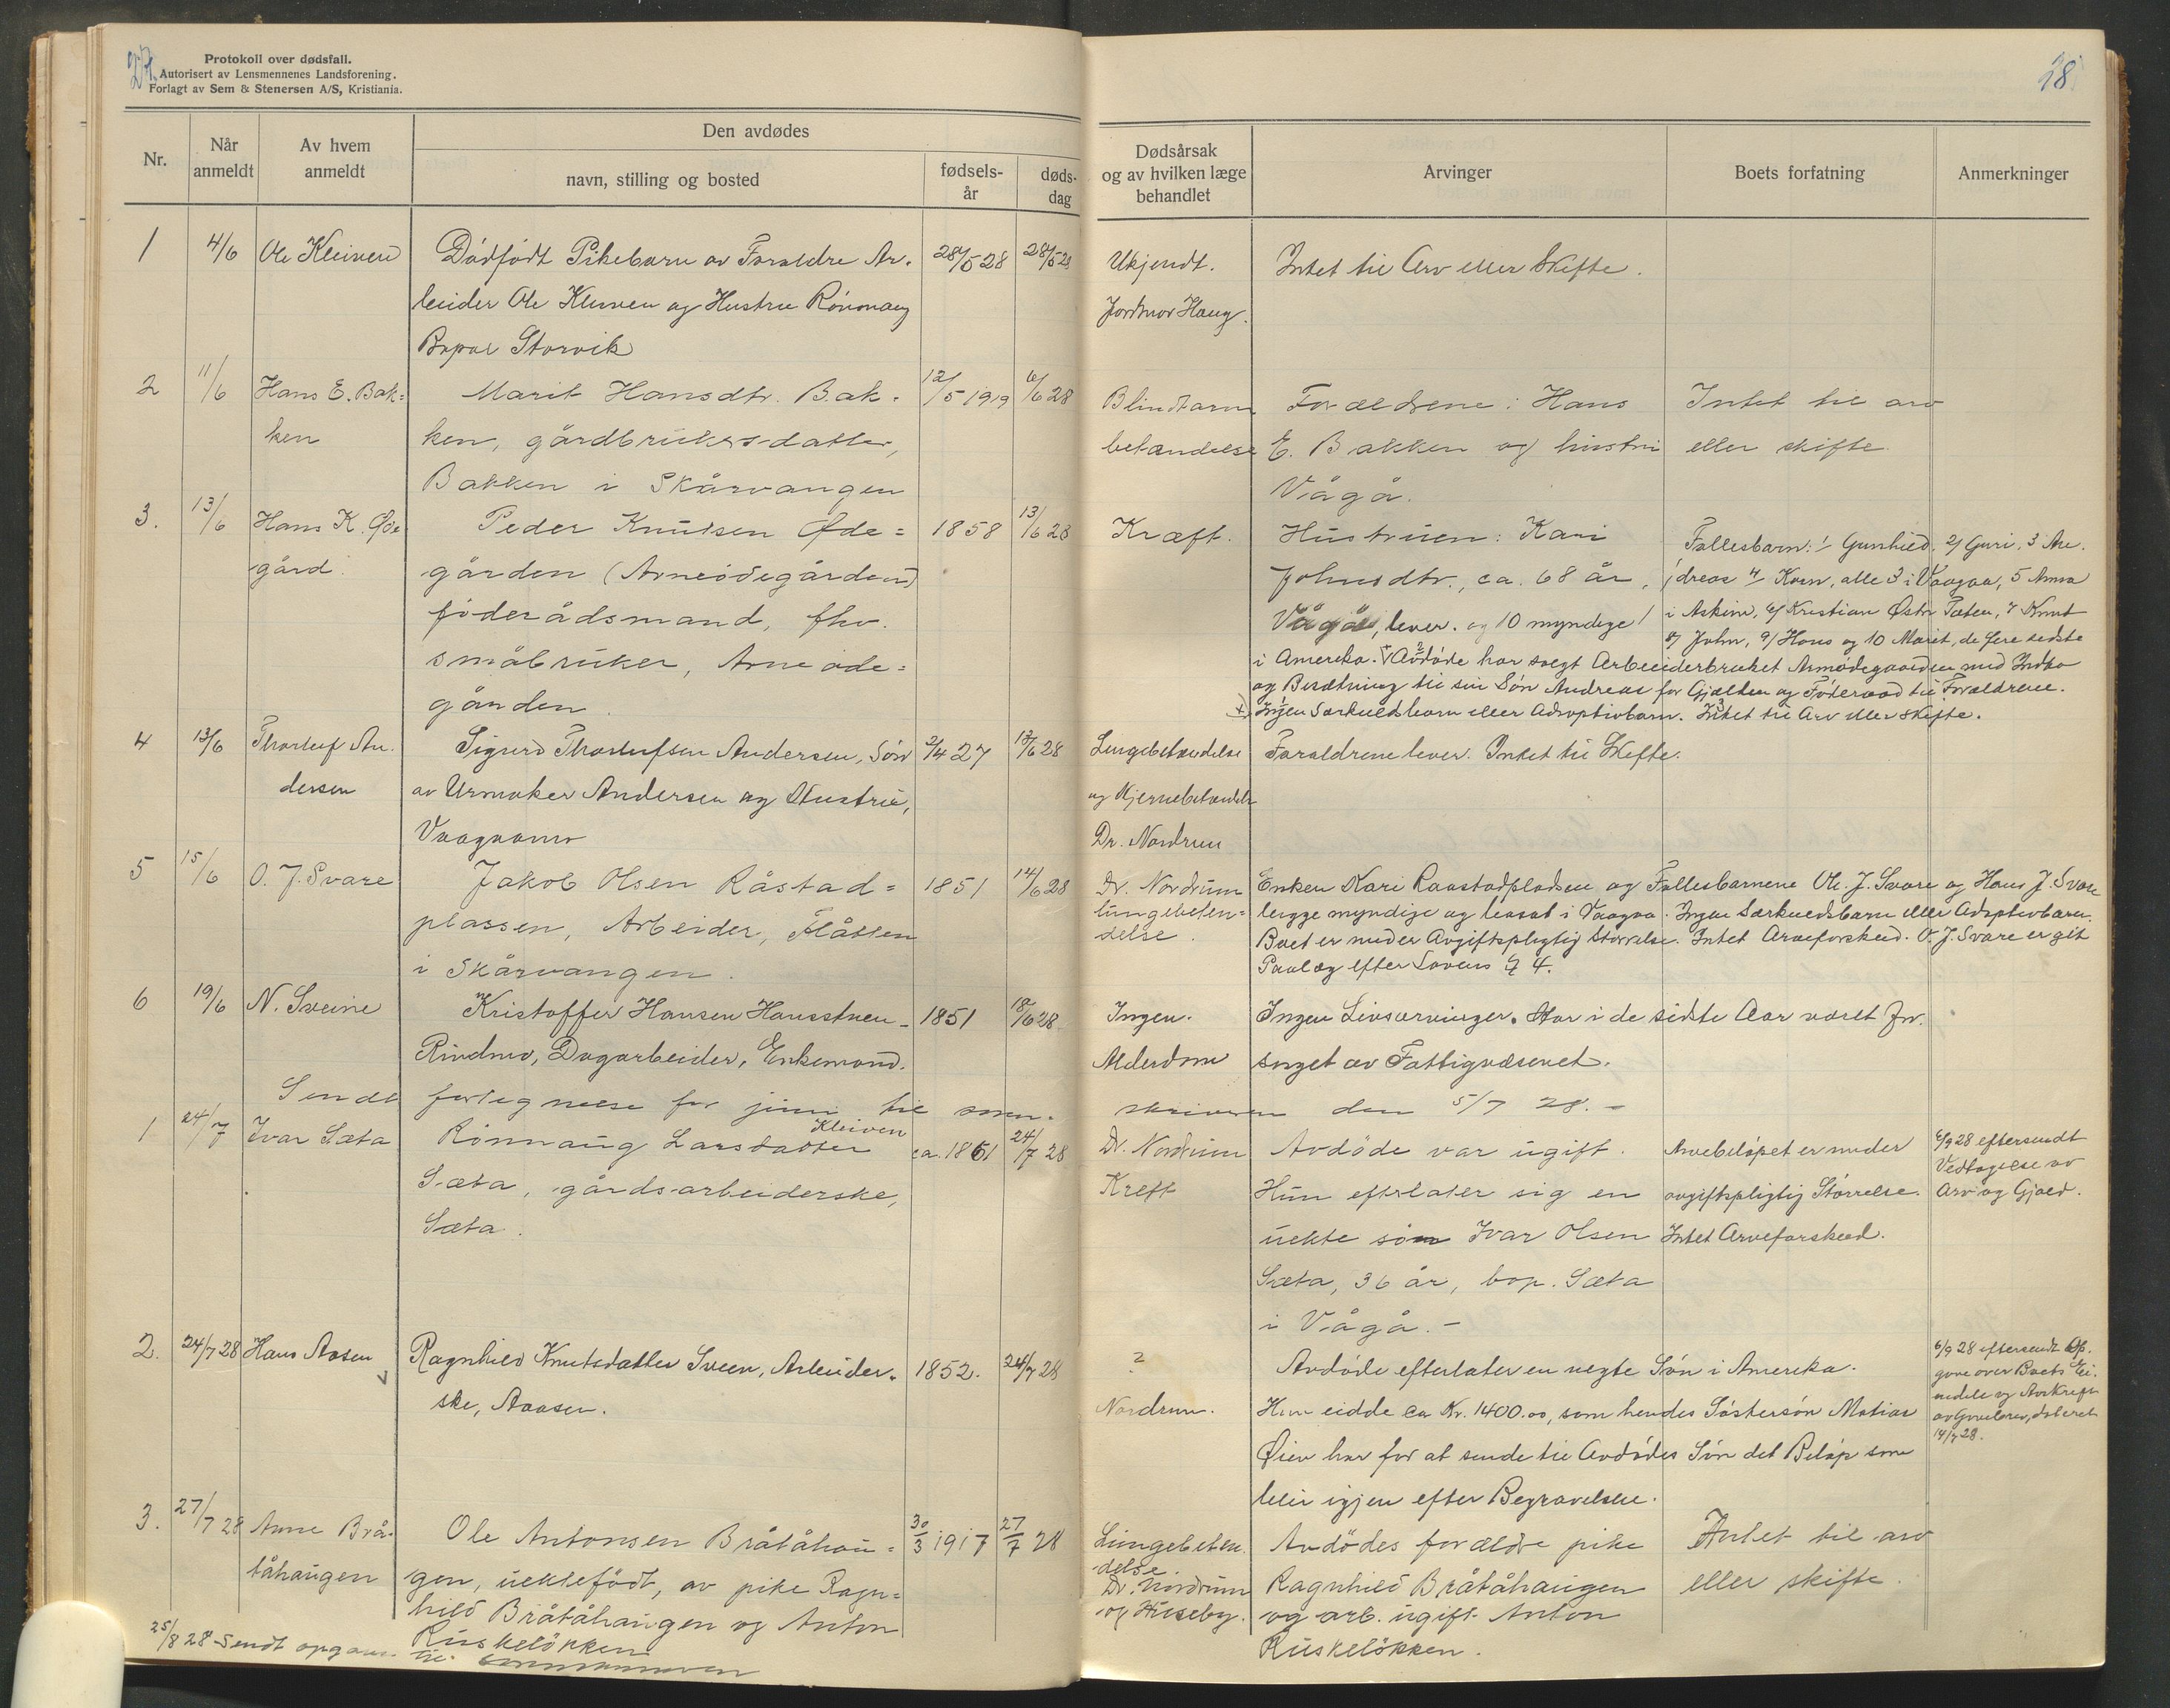 Protokoll over dødsfall.
Autorisert av Lensmennenes Landsforening.
Forlagt av Sem & Stenersen A/S, Kristiania.
18
Nr.
Når anmeldt
Av hvem anmeldt
Den avdødes
navn, stilling og bosted
fødsels-år
døds-dag
Dødsårsak og av hvilken læge behandlet
Arvinger
Boets forfatning
Anmerkninger
1 4/6 Ole Kleiven Dødfødt Pikebarn av Foraldre Ar- 28/5 28 28/5 28 Ukjendt. Intet til Arv eller Skifte.
beider Ole Kleiven og Hustru Rönnaug Jordmor Haug.
Storvik
2 11/6 Hans E. Bak= Marit Hansdtr. Bak- 12/5 1919 6/6 28 Blindtarm Forældrene: Hans Intet til arv
ken ken, gårdbrukersdatter, betændelse E. Bakken og hustru eller skifte
Bakken i Skårvangen Vågå.
3. 13/6 Hans K. Øde Peder Knutsen Øde= 1858 13/6 28 Kræft. Hustruen: Kari Fellesbarn: 1/ Gunhild, 2/ Guri, 3 An-
gård. gården (Arneödegården) Johnsdtr., ca. 68 år, dreas 4/ Karn, alle 3 i Vaagaa, 5 Anna
föderådsmand, fhv. Vågå, lever. og 10 myndige i Askim, 6/ Kristian Østre Toten, 7 Knut
småbruker, Arneöde= 8/ John, 9/ Hans og 10 Marit, de fere sidste
gården. i Amerika. Avdøde har solgt Arbeiderbruket Arnødegaarden med Indbo
og Besætning til sin Søn Andreas for Gjælden og Föderaad til Forældrene.
Ingen Særkuldsbarn eller Adoptivbarn. Intet til Arv eller Skifte.
4 13/6 Thorleif An- Sigurd Thorleifsen Andersen, Søn 2/4 27 13/6 28 Lungebetændelse Foraldrene lever. Intet til Skifte.
dersen av Urmaker Andersen og Hustru, og Hjernebetændelse
Vaagaamo Dr. Nordrum
5 15/6 O. J. Svare Jakob Olsen Råstad= 1851 14/6 28 Dr. Nordrum Enken Kari Raastadpladsen og Fellesbarnene Ole J. Svare og Hans J. Svare
plassen, Arbeider, Flåtten lungebeten= begge myndige og bosat i Vaagaa. Ingen Særkuldsbarn eller Adoptivbarn.
i Skårvangen. delse. Boet er under Avgiftspligtig Størrelse. Intet Arveforskud. O. J. Svare er git
Paalæg efter Lovens § 4.
6 19/6 N. Sveine Kristoffer Hansen Hansstuen- 1851 18/6 28 Ingen. Ingen Livsarvinger. Har i de sidste Aar været for-
Rindmo, Dagarbeider, Enkemand. Alderdom sorget av Fattigvæsenet.
Sendt fortegnelse for juni til soren- skriveren den 5/7 28.-
1 24/7 Ivar Sæta Rönnaug Larsdatter Kleiven ca. 1861 24/7 28 Dr. Nordrum Avdöde var ugift. Arvebeløpet er under 6/9 28 eftersendt
Sæta, gårdsarbeiderske, Kreft Hun efterlater sig en avgiftspligtig Størrelse. Vedtagelse av
Sæta. uekte sön Ivar Olsen Intet Arveforskud. Arv og Gjæld.
Sæta, 36 år, bop. Sæta
i Vågå.-
2. 24/7 28 Hans Aasen Ragnhild Knutsdatter Sveen, Arbeider- 1852. 24/7 28 ? Avdøde efterlater en uegte Søn i Amerika. 6/9 28 eftersendt Op-
ske, Aaasen. Nordrum. Hun eidde ca Kr. 1400.00, som hendes Söstersön Matias gave over Boets Ei-
Øien har for at sende til Avdødes Søn det Beløp som endele og Avskrift
blir igjen efter Begravelse. av Gavebrev, datert 14/7 28.
3. 27/7 28 Anne Brå- Ole Antonsen Bråtåhau= 30/3 1917 27/7 28 Lungebeten- Avdödes forældre pike Intet til arv
tåhaugen gen, uektefödt, av pike Ragn= delse. Ragnhild Bråtåhaugen eller skifte.
hild Bråtåhaugen og Anton Dr. Nordrum og arb. ugift Anton
Ruskelökken og Huseby. Ruskelökken.
25/8 28 Sendt opgave til sorenskriveren